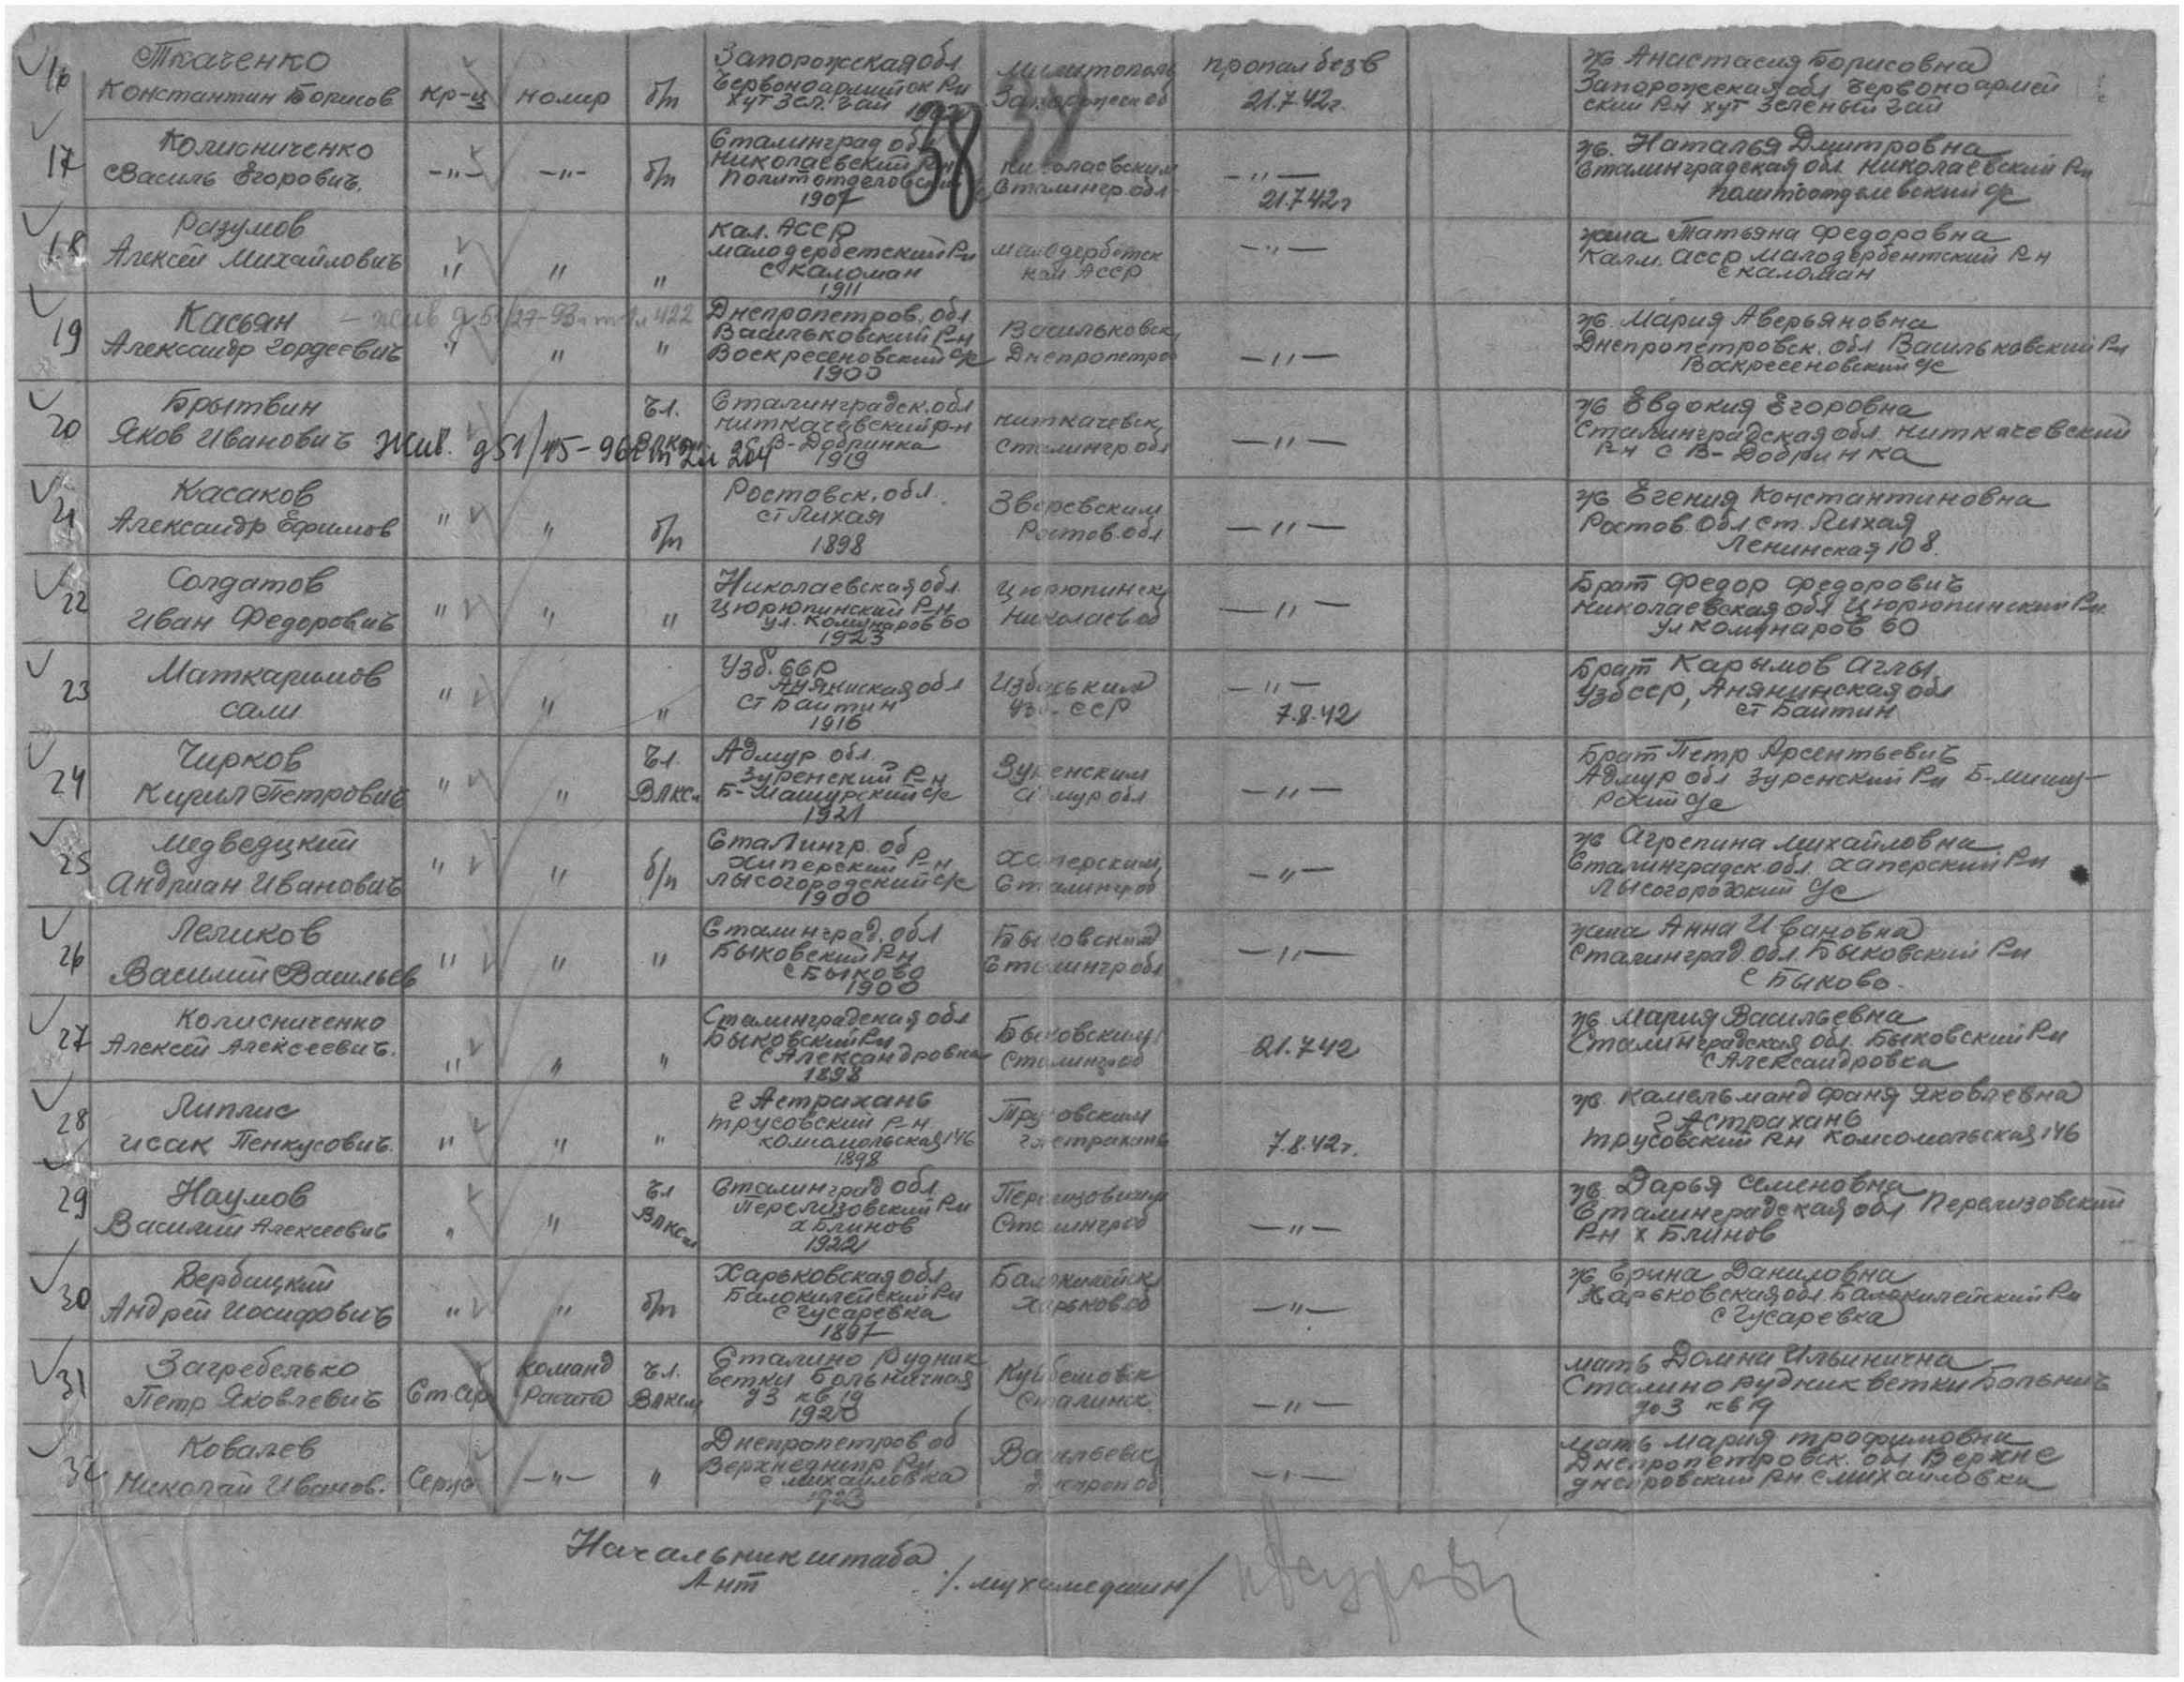 16
Ткаченко
Константин Борисов
кр-ц
номер
б/п
Запорожская обл
Червоноармийск Рн
Хут Зел. Гай
Запорожск об
пропал без в
21.7.42г.
ж Анастасия Борисовна
Запорожская обл Червоноармей
ский Рн хут Зеленый Гай
38
17
Колисниченко
Василь Егорович.
-"-
-"-
б/п
Сталинград об
Николаевский Рн
1907
Николаевским
Сталингр. обл
-"-
21.7.42г
ж. Наталья Дмитровна
Сталинградская обл Николаевский Рн
18
Разумов
Алексей Михайлович
"
"
"
Кал. АССР
Малодербетский Рн
с Каломан
1911
Малодербетск
Кал АССР
-"-
жена Татьяна Федоровна
Калм. АССР Малодербентский Р-н
с Каломан
19
Касьян
Александр Гордеевич
"
"
"
Днепропетров. обл
Васильковский Р-н
Воскресеновский с/с
1900
Васильковск
Днепропетров
-"-
ж. Мария Аверьяновна
Днепропетровск. обл Васильковский Рн
Воскресеновский с/с
20
Брытвин
Яков Иванович
жив.
Чл.
Сталинградск. обл
Ниткачевский р-н
В-Добринка
1919
Ниткачевск
Сталингр обл
-"-
ж Евдокия Егоровна
Сталинградская обл. Ниткачевский
Р-н с В-Добринка
21
Касаков
Александр Ефимов
"
"
б/п
Ростовск. обл.
ст Лихая
1898
Зверевским
Ростов. обл
-"-
ж Егения Константиновна
Ростов. обл ст. Лихая
Ленинская 108.
22
Солдатов
Иван Федорович
"
"
"
Николаевская обл.
Цюрюпинский Р-н
ул. Комунаров 60
1923
Цюрюпинск
Николаев об
-"-
Брат Федор Федорович
Николаевская обл Цюрюпинский Рн
ул Комунаров 60
23
Маткаримов
Сали
"
"
"
Узб. ССР
ст Баитин
1916
Узб. ССР
-"-
7.8.42
Брат Карымов Аглы
Узб ССР, Анянинская обл
ст Баитин
24
Чирков
Кирил Петрович
"
"
Чл.
Влкс
Адмур обл.
Зуренский Р-н
Б-Машурский с/с
1921
Зуренским
Адмур обл
-"-
Брат Петр Арсентьевич
Адмур обл Зуренский Рн Б-Мишу-
рский с/с
25
Медведицкий
Андриан Иванович
"
"
б/п
Сталингр. об
Хиперский Р-н
Лысогородский с/с
1900
Хаперским
Сталингр об
-"-
ж Агрепина Михайловна
Сталинградск обл. Хаперский Рн
Лысогородский с/с
26
Леликов
Василий Васильев
"
"
"
Сталинград. обл
Быковский Рн
с Быково
1900
Быковский
Сталингр обл
-"-
жена Анна Ивановна
Сталинград. обл. Быковский Рн
с Быково.
27
Колисниченко
Алексей Алексеевич.
"
"
"
Сталинградская обл
Быковский Рн
с Александровка
1898
Быковским
Сталингр об
21.7.42
ж Мария Васильевна
Сталинградская обл. Быковский Рн
с Александровка
28
Липлис
Исак Пенкусович.
"
"
"
г Астрахань
Трусовский Р-н
Комсомольская 146
1898
Трусовским
г Астрахань
7.8.42г.
ж. Камельманд Фаня Яковлевна
г Астрахань
Трусовский Рн Комсомольская 146
29
Наумов
Василий Алексеевич
"
"
Чл
Влксм
Сталинград обл
Перелизовский Рн
х Блинов
1922
Сталингр об
-"-
ж. Дарья Семеновна
Сталинградская обл Перелизовский
Рн х Блинов
30
Вербицкий
Андрей Иосифович
"
"
б/п
Харьковская обл
Балокилейский Рн
с Гусаревка
1897
Балокилейск
Харьков об
-"-
ж Ерина Даниловна
Харьковская обл. Балокилейский Рн
с Гусаревка
31
Загребелько
Петр Яковлевич
Ст Ср
Команд
Расчота
Чл.
Влксм
Сталино Рудник
Ветки Больничная
д 3 кв 19
1920
Куйбешовск
Сталинск.
-"-
мать Домна Ильинична
Сталино рудник ветки Больнич
до 3 кв 19
32
Ковалев
Николай Иванов.
Серж
-"-
"
Днепропетров об
Верхнеднепр Рн
с Михайловка
1923
Васильевск
Днепроп об
-"-
мать Мария Трофимовна
Днепропетровск. обл Верхне
днепровский Рн с Михайловка
Начальник штаба
/Мухамедшин/